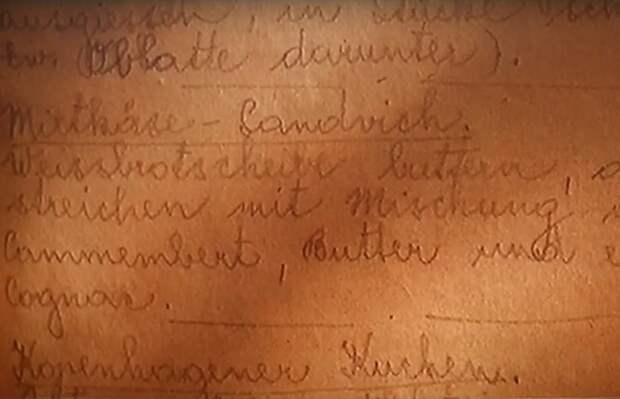 ausgiessen, in Stücke
bzw. Oblatte darunter).
Mixtkäse - Sandvich.
Weissbrotscheibe buttern,
streichen mit Mischung
Cammembert, Butter und e
Cognac.
Kopenhagener Kuchen.